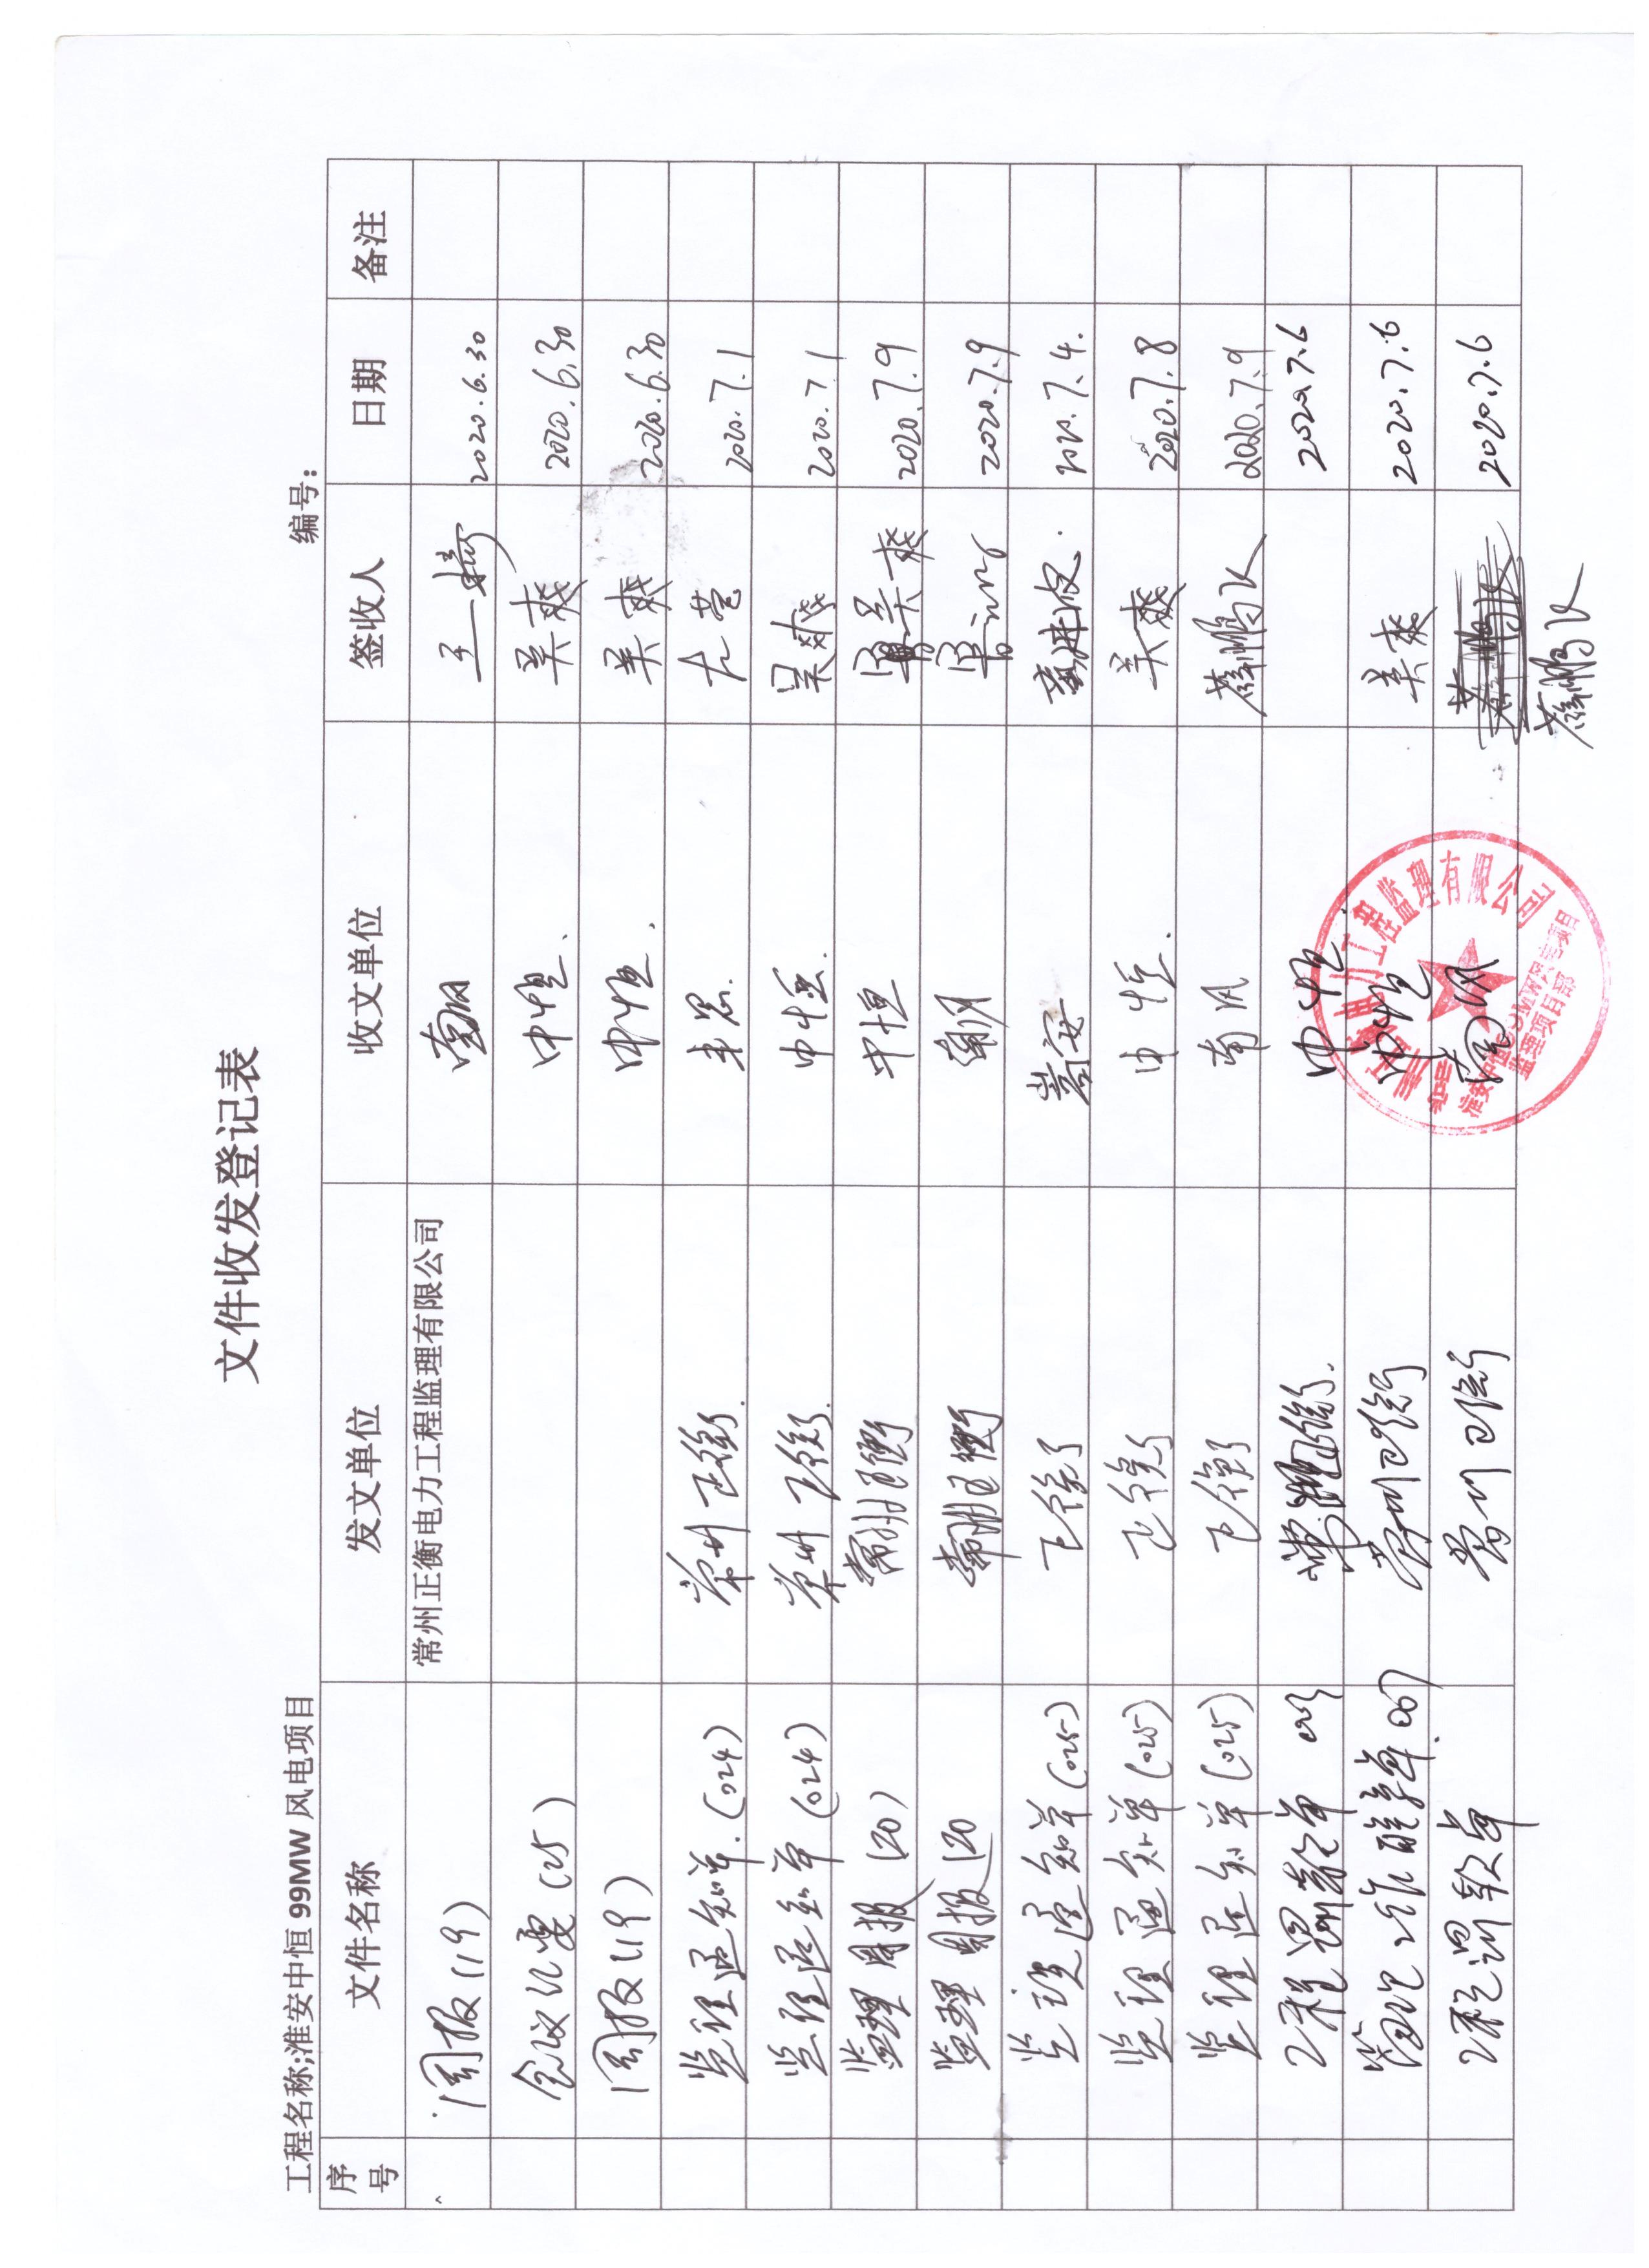 文件收发登记表
工程名称;淮安中恒99MW风电项目 编号:
序号 文件名称 发文单位 收文单位 签收人 日期 备注
周报(19) 常州正衡电力工程监理有限公司 2020.6.30
会议纪要(25) 中恒 吴爽 2020.6.30
周报(19) 中恒 吴爽 2020.6.30
监理通知单(024) 常州正衡 2020.7.1
监理通知单(024) 常州正衡 中恒 吴爽 2020.7.1
监理周报(20) 常州正衡 中恒 吴爽 2020.7.9
监理周报(20 常州正衡 2020.7.9
监理通知单(025) 正衡 嵩安 2020.7.4.
监理通知单(025) 正衡 中恒 吴爽 2020.7.8
监理通知单(025) 正衡 南风 薛鹏飞 2020.7.9
工程 单 正衡 中恒 2020.7.6
工作联系单 007 常州正衡 中恒 吴爽 2020.7.6
工程 单 常州正衡 2020.7.6
薛鹏飞
电力工程监理有限公司
淮安中恒99MW风电项目
监理项目部